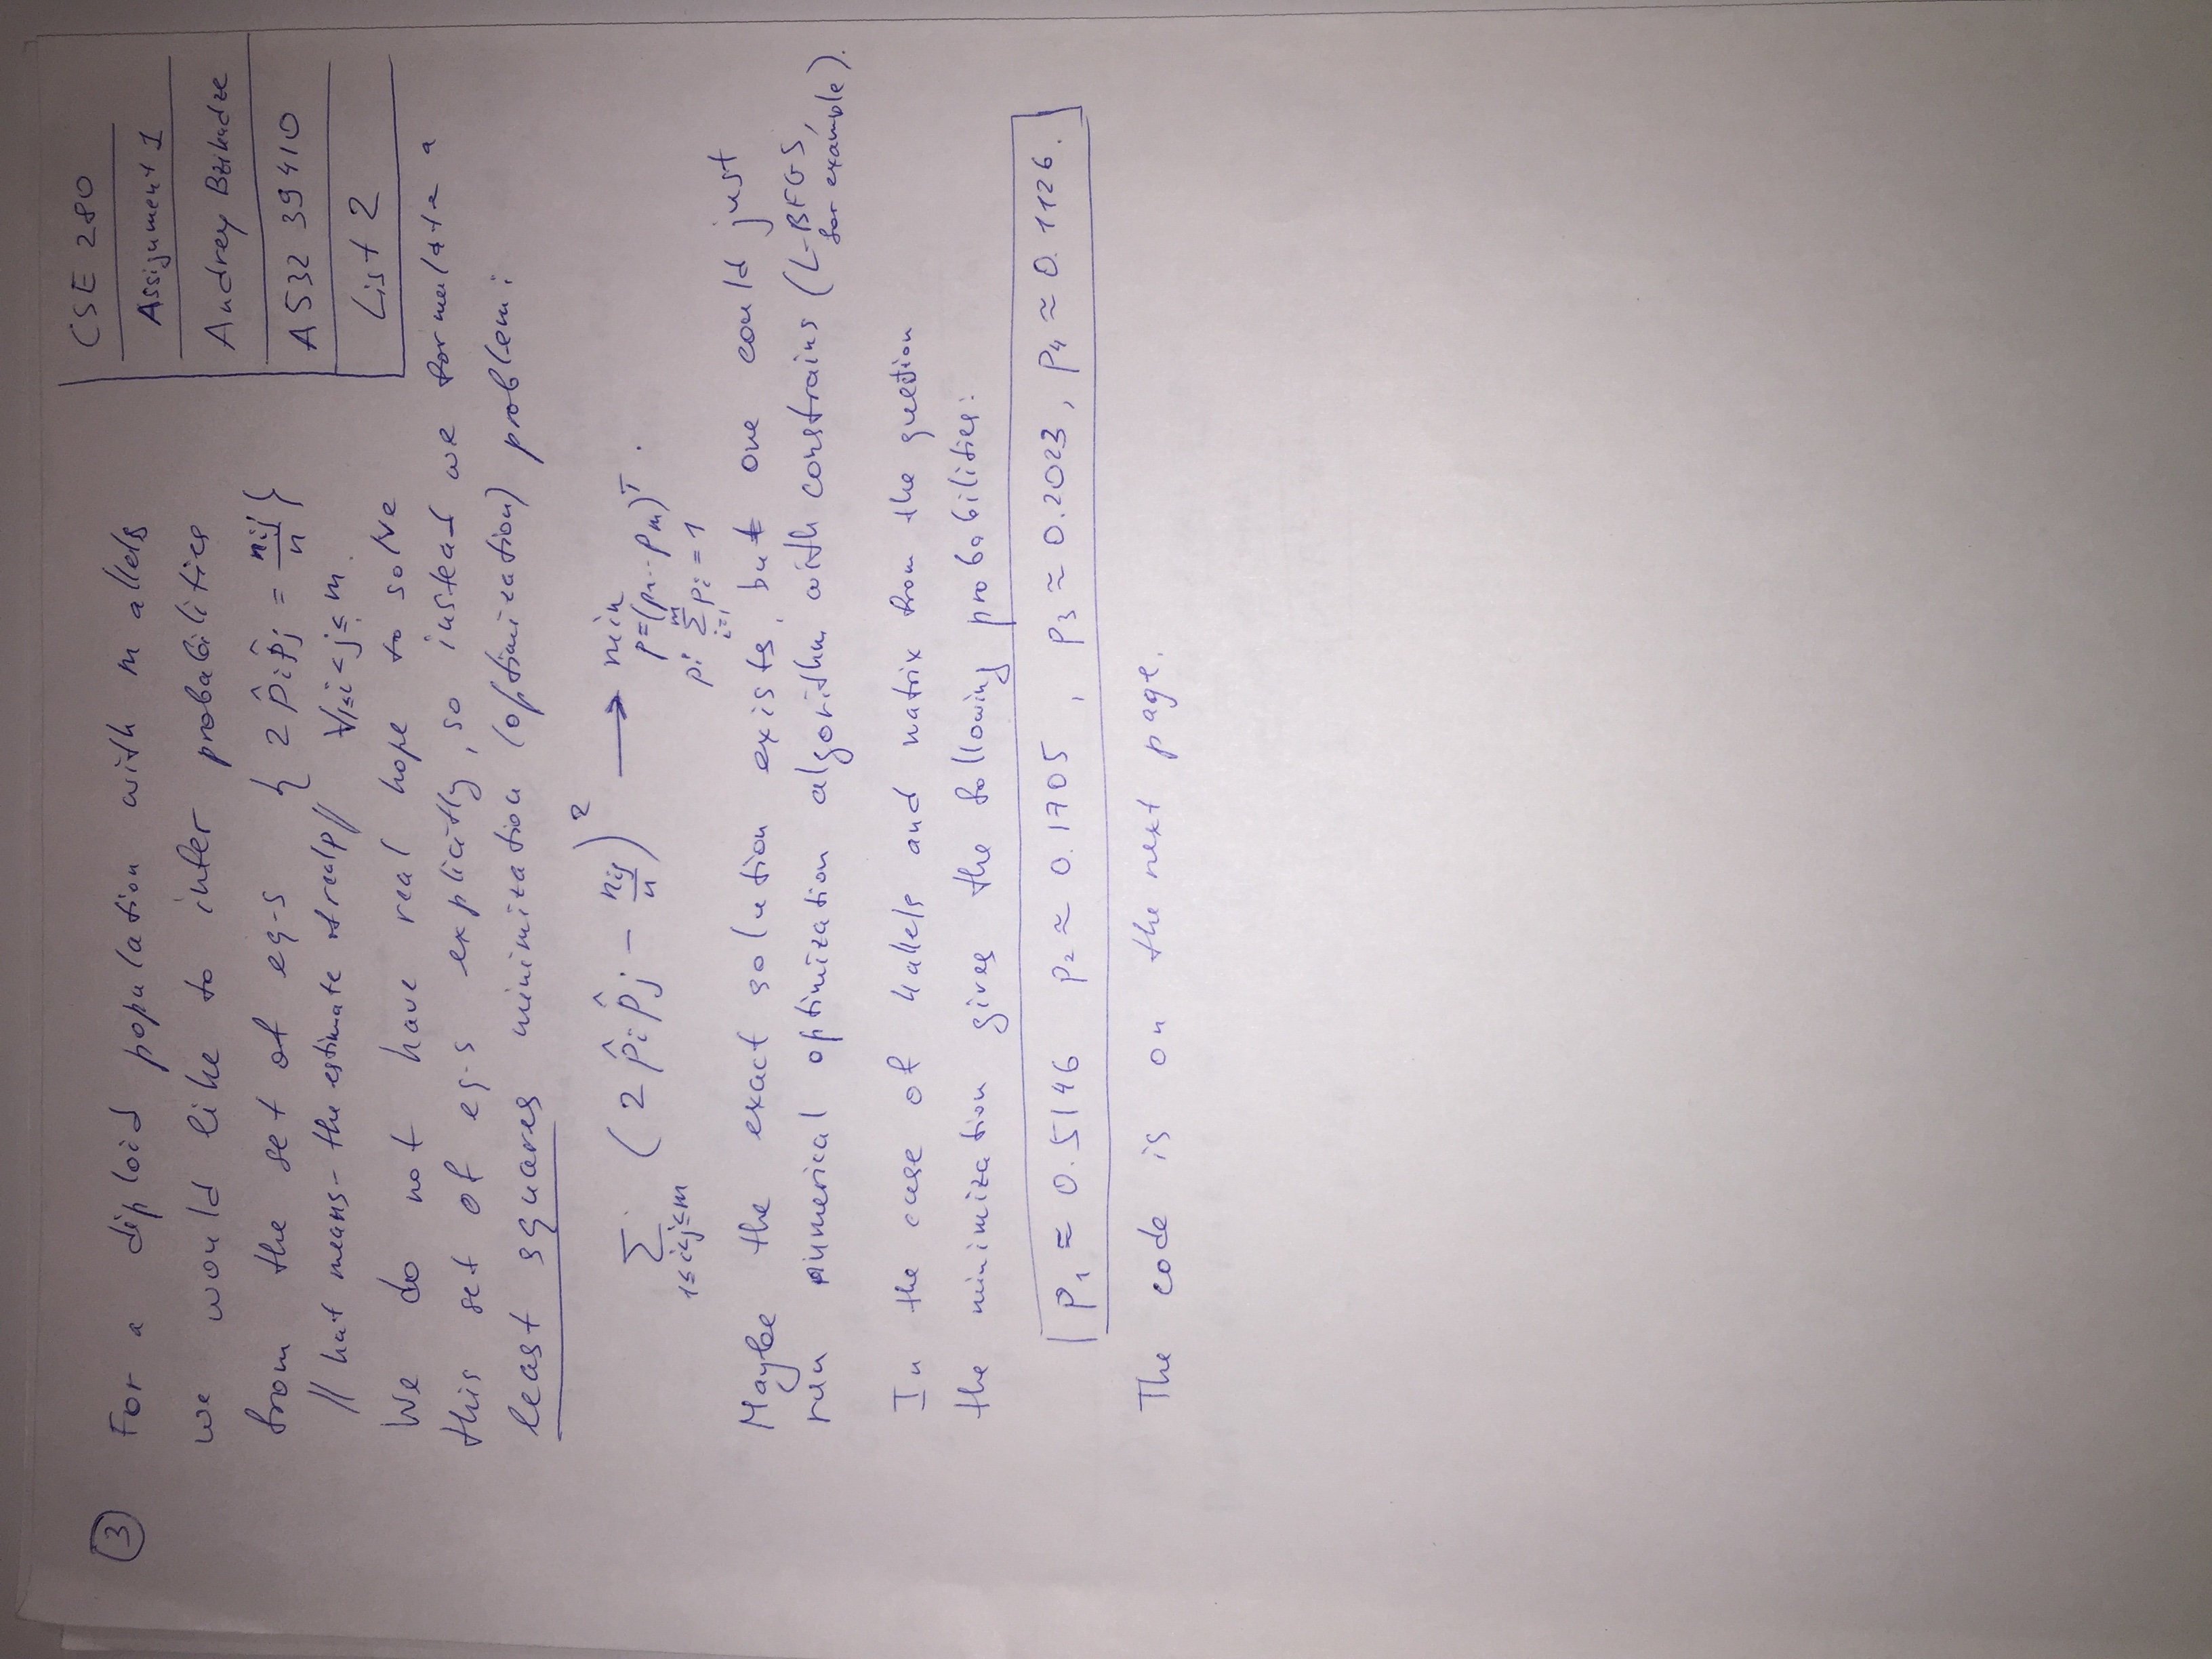 CSE 280
Assignment 1
Andrey Bzikadze
A532 39410
List 2
③ For a diploid population with m allels
we would like to infer probabilities
from the set of eq-s { 2 p̂ᵢp̂ⱼ = nᵢⱼ/n }
// hat means - the estimate of real p // ∀1≤i<j≤m.
We do not have real hope to solve
this set of eq-s explicitly, so instead we formulate a
least squares minimization (optimization) problem:
Σ (2 p̂ᵢ p̂ⱼ - nᵢⱼ/n)² → min
1≤i<j≤m p=(p₁..pₘ)ᵀ.
p: Σᵢ₌₁ᵐ pᵢ = 1
Maybe the exact solution exists, but one could just
run numerical optimization algorithm with constrains (L-BFGS,
for example).
In the case of 4 allels and matrix from the question
the minimization gives the following probabilities:
p₁ ≈ 0.5146 p₂ ≈ 0.1705 , p₃ ≈ 0.2023, p₄ ≈ 0.1126.
The code is on the next page.